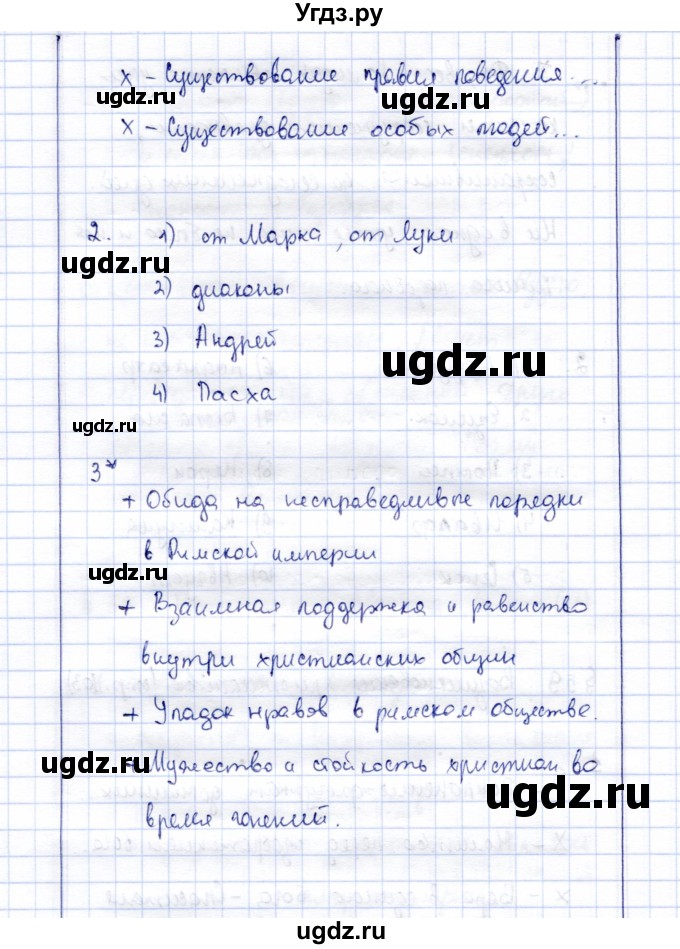 Угдз.ру
x - Существование правил поведения...
ugdz.ru
ugdz.ru
x - Существование особых людей...
2. 1) от Марка, от Луки
ugdz.ru
2) диаконы
3) Андрей
ugdz.ru
4) Пасха
3*
+ Обида на несправедливые порядки
в Римской империи
ugdz.ru
+ Взаимная поддержка и равенство
внутри христианских общин
+ Упадок нравов в римском обществе.
ugdz.ru
+ Мужество и стойкость христиан во
ugdz.ru
время гонений.
ugdz.ru